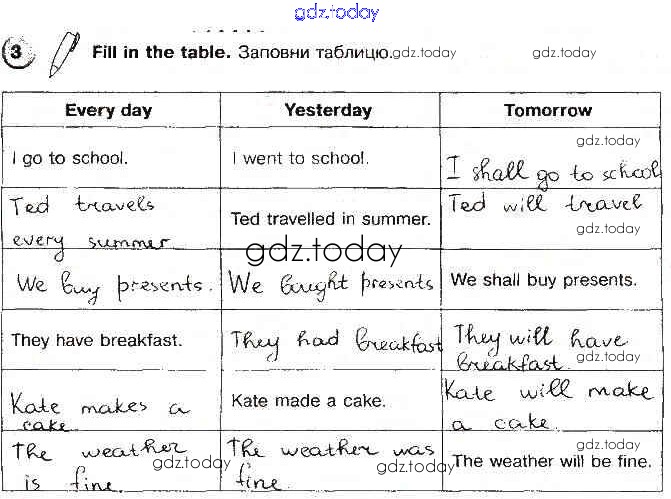 gdz.today
3 Fill in the table. Заповни таблицю. gdz.today gdz.today
Every day Yesterday Tomorrow
gdz.today
I go to school. I went to school. I shall go to school
Ted travels every summer Ted travelled in summer. Ted will travel
gdz.today
gdz.today
We buy presents. We bought presents We shall buy presents.
They have breakfast. They had breakfast They will have breakfast.
gdz.today
Kate makes a cake. Kate made a cake. Kate will make a cake.
The weather is fine. The weather was fine. The weather will be fine.
gdz.today gdz.today